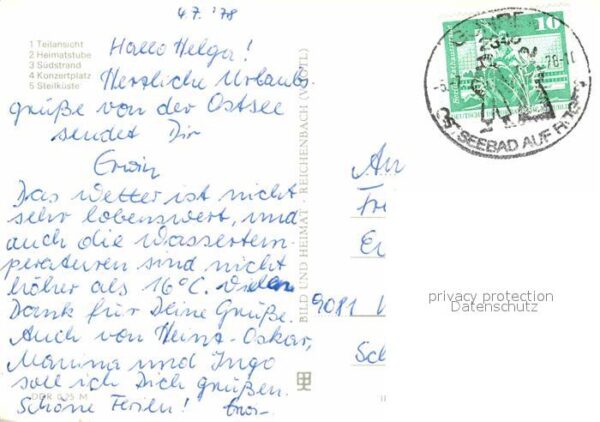 4.7.'78
1 Teilansicht
2 Heimatstube
3 Südstrand
4 Konzertplatz
5 Steilküste
Hallo Helga!
Herzliche Urlaubs-
grüße von der Ostsee
sendet Dir
Erwin
Das Wetter ist nicht
sehr lobenswert, und
auch die Wassertem-
peraturen sind nicht
höher als 16°C. Vielen
Dank für Deine Grüße.
Auch von Heinz-Oskar,
Manina und Ingo
soll ich Dich grüßen.
Schöne Ferien!
DDR 0,25 M
BILD UND HEIMAT · REICHENBACH (VOGTL)
An
9081
10
OSTSEEBAD AUF RÜGEN
privacy protection
Datenschutz